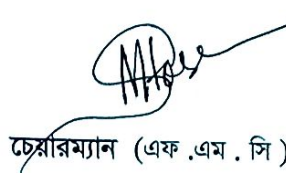 চেয়ারম্যান (এফ .এম . সি)